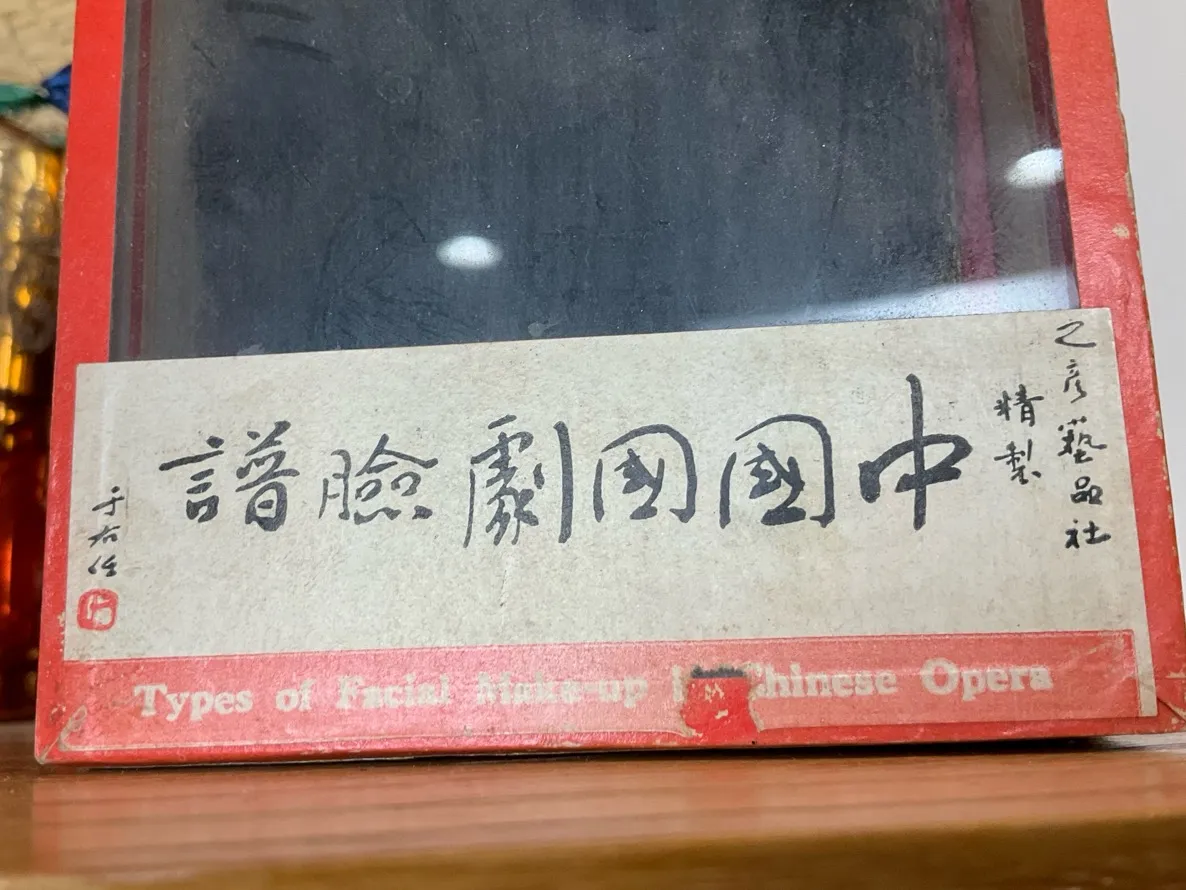 之彥藝品社
精製
中國國劇臉譜
于右任
Types of Facial Make-up Chinese Opera